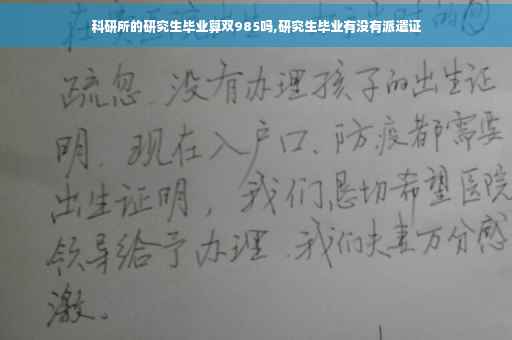 科研所的研究生毕业算双985吗,研究生毕业有没有派遣证
疏忽、没有办理孩子的出生证
明、现在入户口、防疫都需要
出生证明，我们恳切希望医院
领导给予办理、我们夫妻万分感
激。